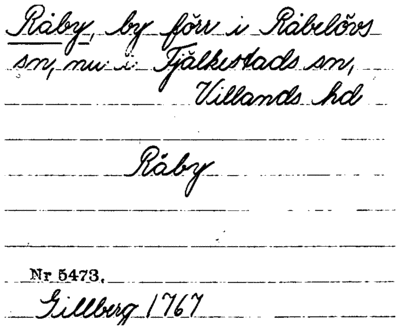 Råby, by förr i Råbelövs
sn, nu i Fjälkestads sn,
Villands hd
Råby
Nr 5473.
Gillberg 1767